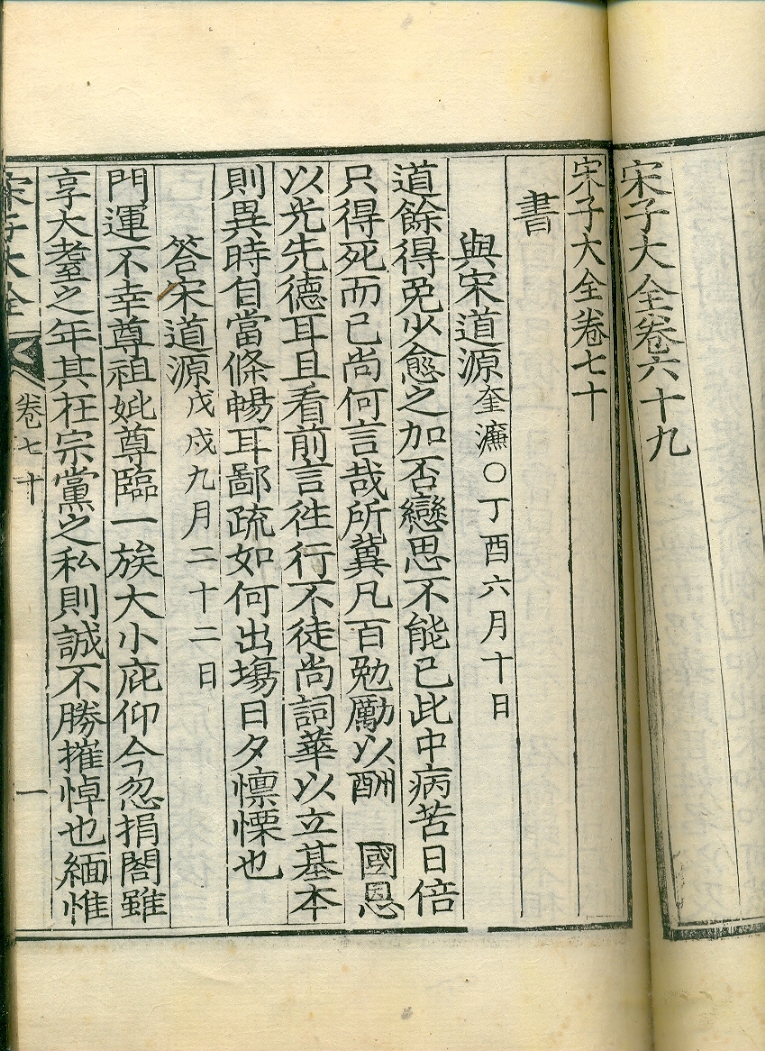 宋子大全卷六十九
宋子大全卷七十
書
與宋道源奎濂○丁酉六月十日
道餘得免少愈之加否戀思不能已此中病苦日倍
只得死而已尚何言哉所冀凡百勉勵以酬 國恩
以光先德耳且看前言徃行不徒尚詞華以立基本
則異時自當條暢耳鄙疏如何出場日夕懍慄也
答宋道源戊戌九月二十二日
門運不幸尊祖妣尊臨一族大小庇仰今忽捐閤雖
享大耋之年其在宗黨之私則誠不勝摧悼也緬惟
宋子大全
卷七十
一